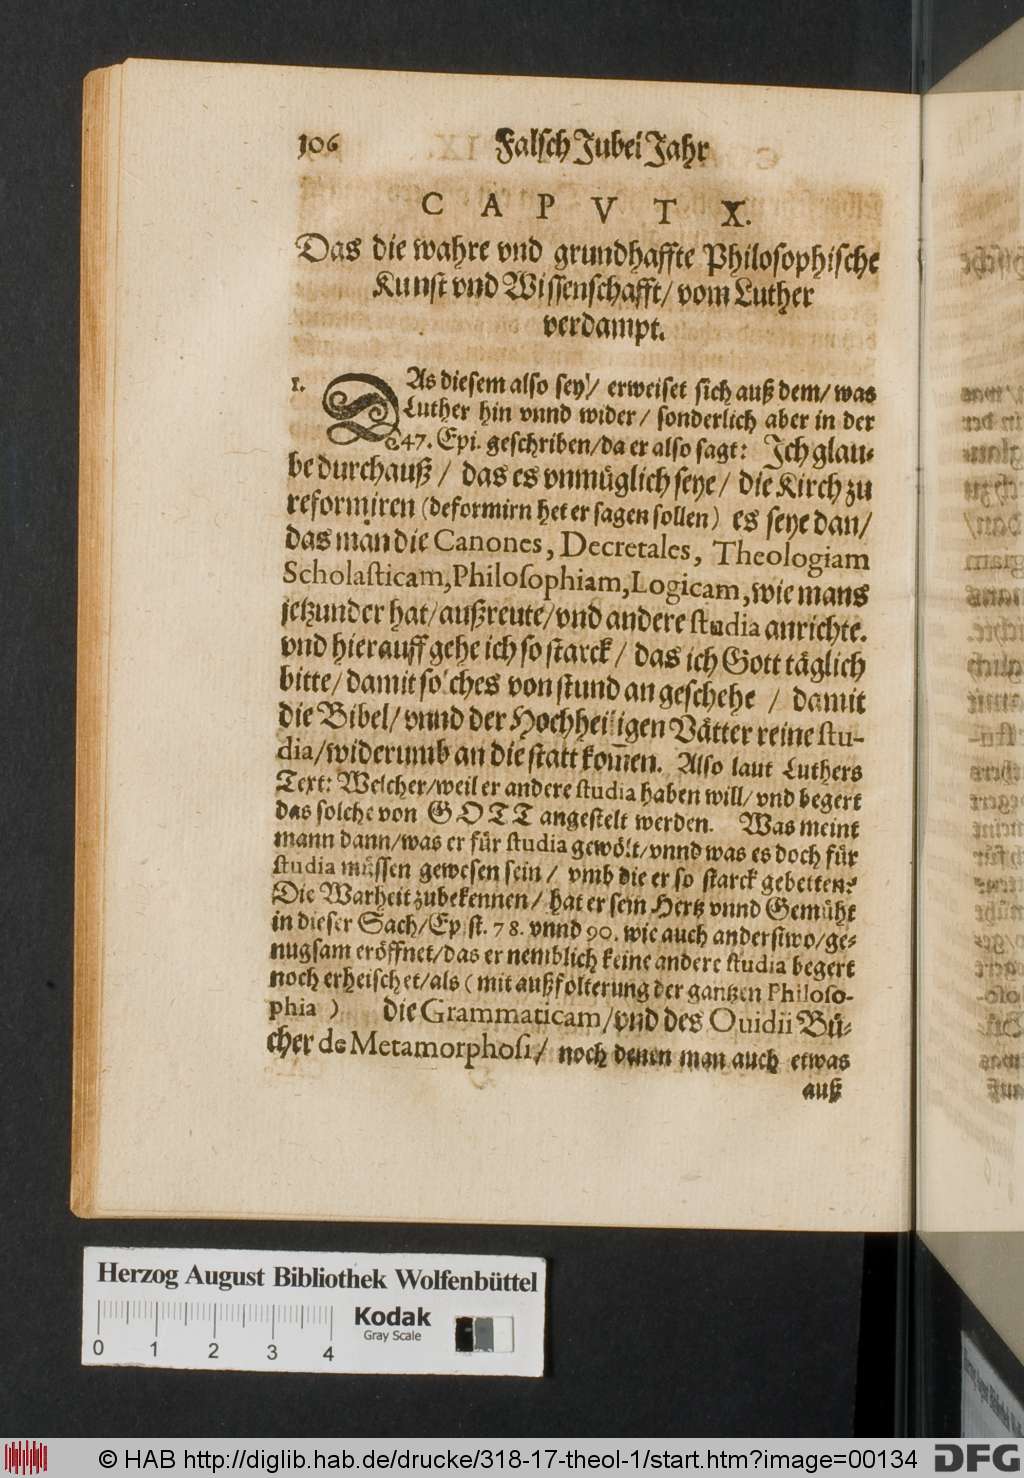 106 Falsch Jubel Jahr
CAPVT X.
Das die wahre vnd grundhaffte Philosophische
Kunst vnd Wissenschafft/ vom Luther
verdampt.
1. DAs diesem also sey/ erweiset sich auß dem/ was
Luther hin vnnd wider/ sonderlich aber in der
147. Epi. geschriben/ da er also sagt: Ich glau-
be durchauß/ das es vnmüglich seye/ die Kirch zu
reformiren (deformirn het er sagen sollen) es seye dan/
das man die Canones, Decretales, Theologiam
Scholasticam, Philosophiam, Logicam, wie mans
jetzunder hat/ außreute/ vnd andere studia anrichte.
vnd hierauff gehe ich so starck/ das ich Gott täglich
bitte/ damit solches von stund an geschehe / damit
die Bibel/ vnnd der Hochheiligen Vätter reine stu-
dia/ widerumb an die statt kom̃en. Also laut Luthers
Text: Welcher/ weil er andere studia haben will/ vnd begert
das solche von GOTT angestelt werden. Was meint
mann dann/ was er für studia gewölt/ vnnd was es doch für
studia müssen gewesen sein/ vmb die er so starck gebetten?
Die Warheit zubekennen/ hat er sein Hertz vnnd Gemüht
in dieser Sach/ Epist. 78. vnnd 90. wie auch anderstwo/ ge-
nugsam eröffnet/ das er nemblich keine andere studia begert
noch erheischet/ als (mit außfolterung der gantzen Philoso-
phia) die Grammaticam/ vnd des Ouidii Bü-
cher de Metamorphosi/ noch denen man auch etwas
auß
Herzog August Bibliothek Wolfenbüttel
Kodak
Gray Scale
0 1 2 3 4
© HAB http://diglib.hab.de/drucke/318-17-theol-1/start.htm?image=00134 DFG